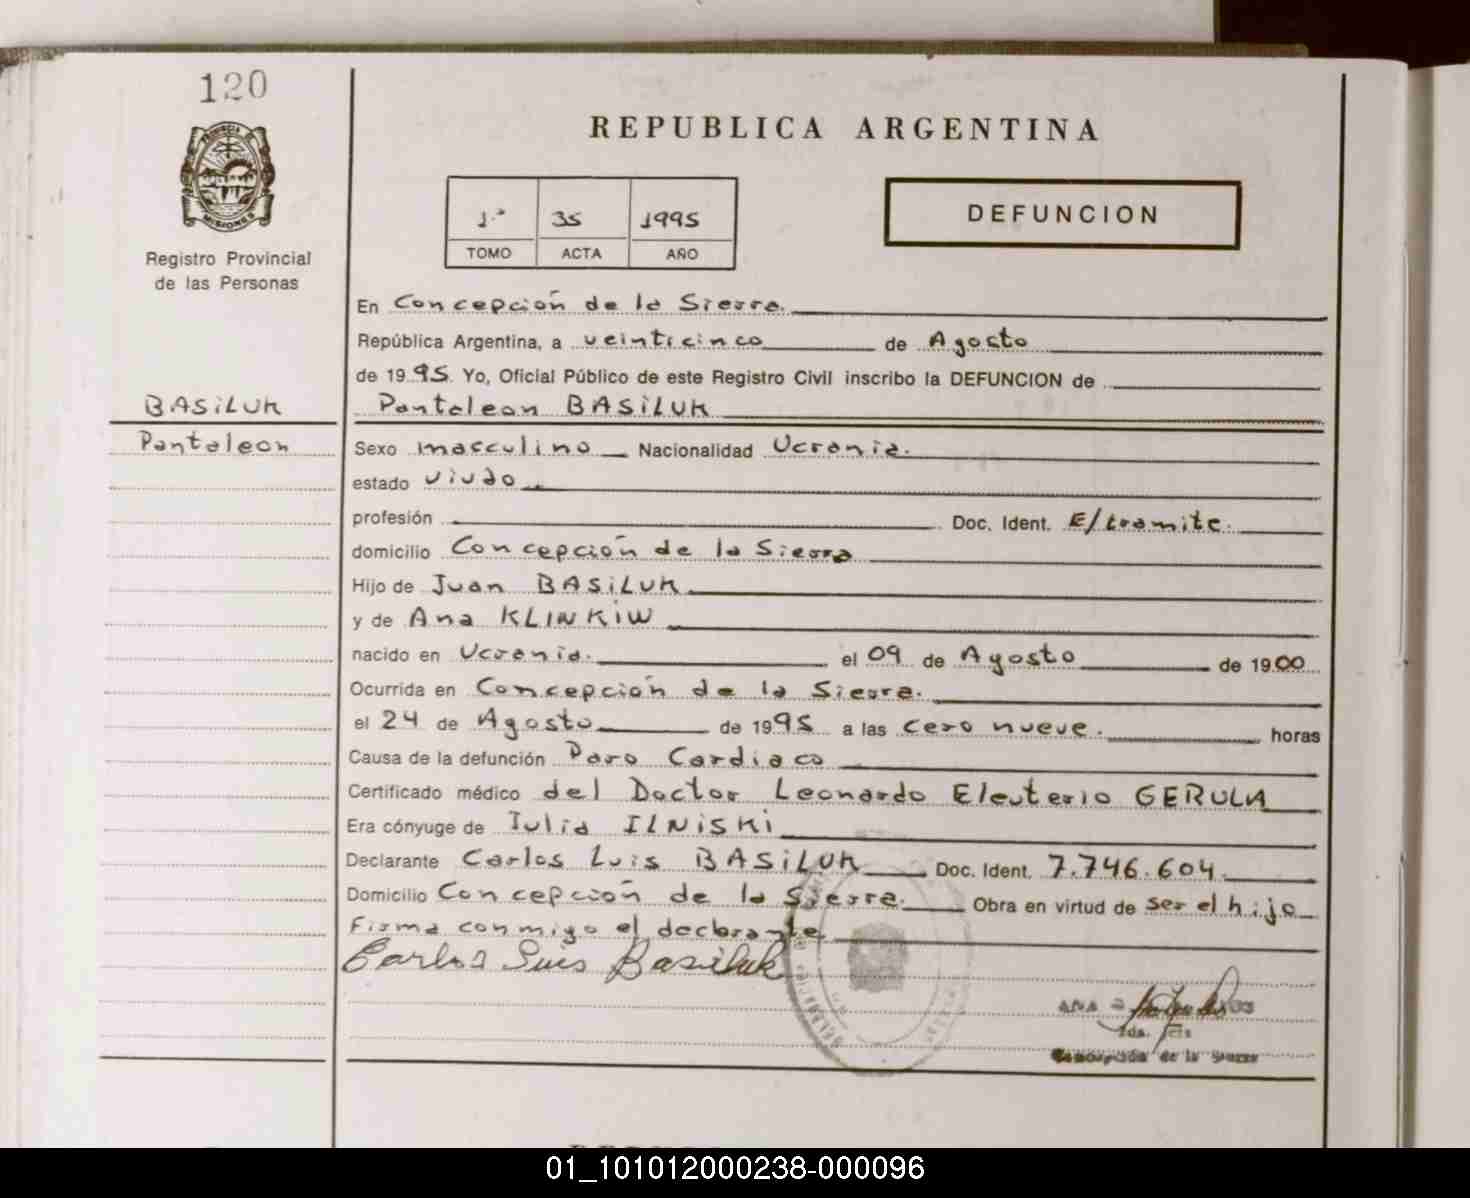 120
REPUBLICA ARGENTINA
1.ª 35 1995
TOMO ACTA AÑO
DEFUNCION
MISIONES
Registro Provincial
de las Personas
En Concepción de la Sierra.
República Argentina, a veinticinco de Agosto
de 1995. Yo, Oficial Público de este Registro Civil inscribo la DEFUNCION de
BASiLUK Pantaleon BASiLUK
Pantaleon Sexo masculino Nacionalidad Ucrania.
estado viudo
profesión Doc. Ident. E/tramite.
domicilio Concepción de la Sierra
Hijo de Juan BASiLUK
y de Ana KLINKiW
nacido en Ucrania. el 09 de Agosto de 1900
Ocurrida en Concepción de la Sierra.
el 24 de Agosto de 1995 a las cero nueve. horas
Causa de la defunción Paro Cardiaco
Certificado médico del Doctor Leonardo Eleuterio GERULA
Era cónyuge de Iulia ILNiSKi
Declarante Carlos Luis BASiLUK Doc. Ident. 7.746.604.
Domicilio Concepción de la Sierra. Obra en virtud de ser el hijo
Firma conmigo el declarante
Carlos Luis Basiluk
ANA
Concepción de la Sierra
01_101012000238-000096